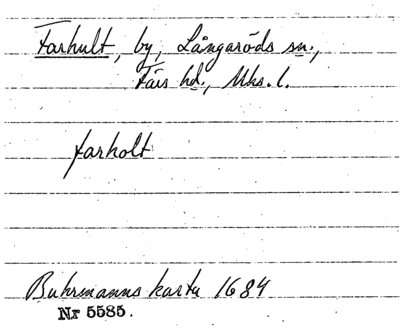 Farhult, by, Långaröds sn.,
Färs hd., Mhs. l.
farholt
Buhrmanns karta 1684
Nr 5585.